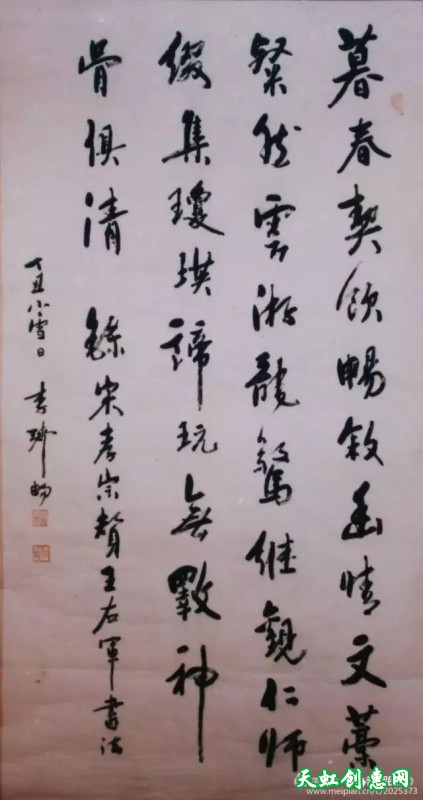 暮春契领畅叙幽情文藻
粲然云游龙惊继观仁师
缀集琼琪谛玩无斁神
骨俱清 录宋孝宗赞王右军书法
丁丑小雪日 李
天虹创惠网
www.meipian.cn/c/2025373